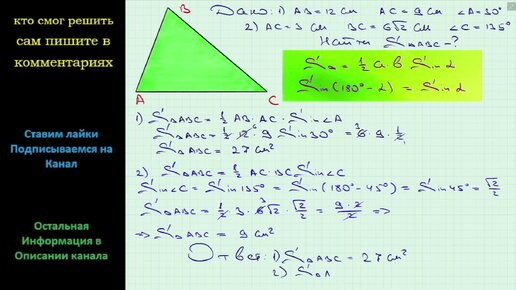 кто смог решить
сам пишите в
комментариях
Ставим лайки
Подписываемся на
Канал
Остальная
Информация в
Описании канала
B
A
C
Дано: 1) AB=12 см AC=9 см ∠A=30°
2) AC=3 см BC=6√2 см ∠C=135°
Найти S△ABC-?
S△ = 1/2 a b Sin α
Sin(180°-α) = Sin α
1) S△ABC = 1/2 AB·AC·Sin∠A
S△ABC = 1/2 ·12·9 Sin30° = 6·9·1/2
S△ABC = 27 см²
2) S△ABC = 1/2 AC·BC Sin∠C
Sin∠C = Sin135° = Sin(180°-45°) = Sin45° = √2/2
S△ABC = 1/2 ·3·6√2·√2/2 = 9·2/2 =>
=> S△ABC = 9 см²
Ответ: 1) S△ABC = 27 см²
2) S△A